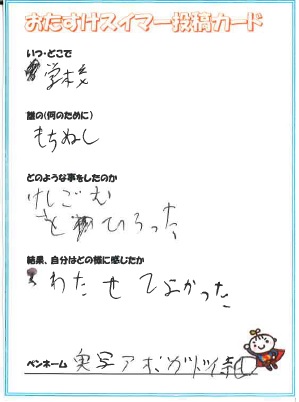 おたすけスイマー投稿カード
いつ・どこで
学校
誰の(何のために)
もちぬし
どのような事をしたのか
けしごむ
をひろった
結果、自分はどの様に感じたか
わたせてよかった
ペンネーム 実写アボガド組